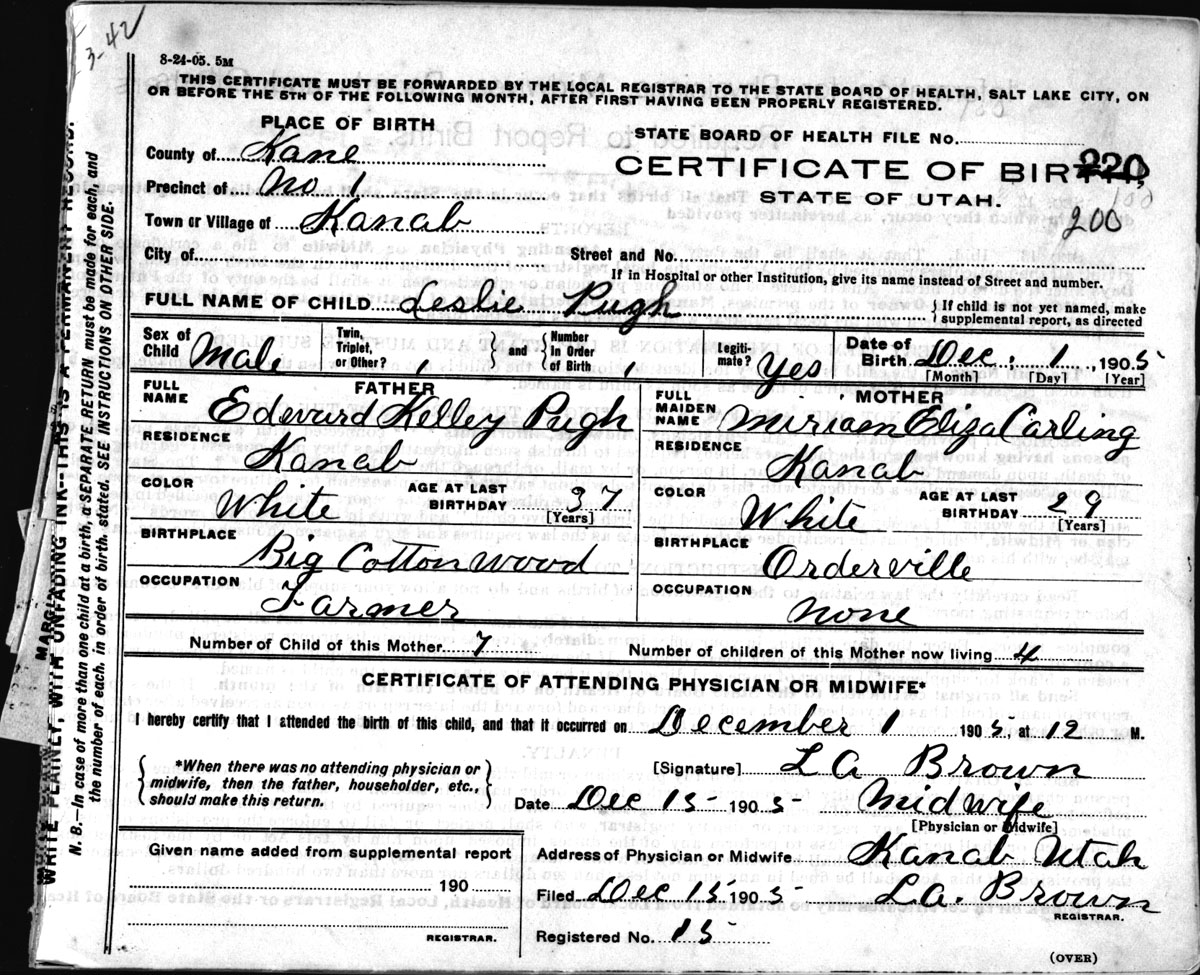 3-42
8-24-05. 5M
THIS CERTIFICATE MUST BE FORWARDED BY THE LOCAL REGISTRAR TO THE STATE BOARD OF HEALTH, SALT LAKE CITY, ON
OR BEFORE THE 5TH OF THE FOLLOWING MONTH, AFTER FIRST HAVING BEEN PROPERLY REGISTERED.
PLACE OF BIRTH
STATE BOARD OF HEALTH FILE No.
County of Kane
CERTIFICATE OF BIRTH, 220
Precinct of No 1
STATE OF UTAH. 100
Town or Village of Kanab
200
City of Street and No.
If in Hospital or other Institution, give name instead of Street and number.
FULL NAME OF CHILD Leslie Pugh { If child is not yet named, make
supplemental report, as directed
Sex of Child Male Twin, Triplet, or Other? } and { Number In Order of Birth Legiti-mate? Yes Date of Birth Dec. 1, 1905
[Month] [Day] [Year]
FATHER MOTHER
FULL NAME Edward Kelley Pugh FULL MAIDEN NAME Miriam Eliza Carling
RESIDENCE Kanab RESIDENCE Kanab
COLOR White AGE AT LAST BIRTHDAY 37 [Years] COLOR White AGE AT LAST BIRTHDAY 29 [Years]
BIRTHPLACE Big Cotton Wood BIRTHPLACE Orderville
OCCUPATION Farmer OCCUPATION None
Number of Child of this Mother 7 Number of children of this Mother now living 4
CERTIFICATE OF ATTENDING PHYSICIAN OR MIDWIFE*
I hereby certify that I attended the birth of this child, and that it occurred on December 1 1905, at 12 M.
{ *When there was no attending physician or
midwife, then the father, householder, etc.,
should make this return. }
[Signature] L A Brown
Date Dec 15 1905 Midwife
[Physician or Midwife]
Given name added from supplemental report
190
REGISTRAR.
Address of Physician or Midwife Kanab Utah
Filed Dec 15 1905 L.A. Brown
REGISTRAR.
Registered No. 15
(OVER)
WRITE PLAINLY, WITH UNFADING INK--THIS IS A PERMANENT RECORD.
N. B.—In case of more than one child at a birth, a SEPARATE RETURN must be made for each, and
the number of each, in order of birth, stated. SEE INSTRUCTIONS ON OTHER SIDE.